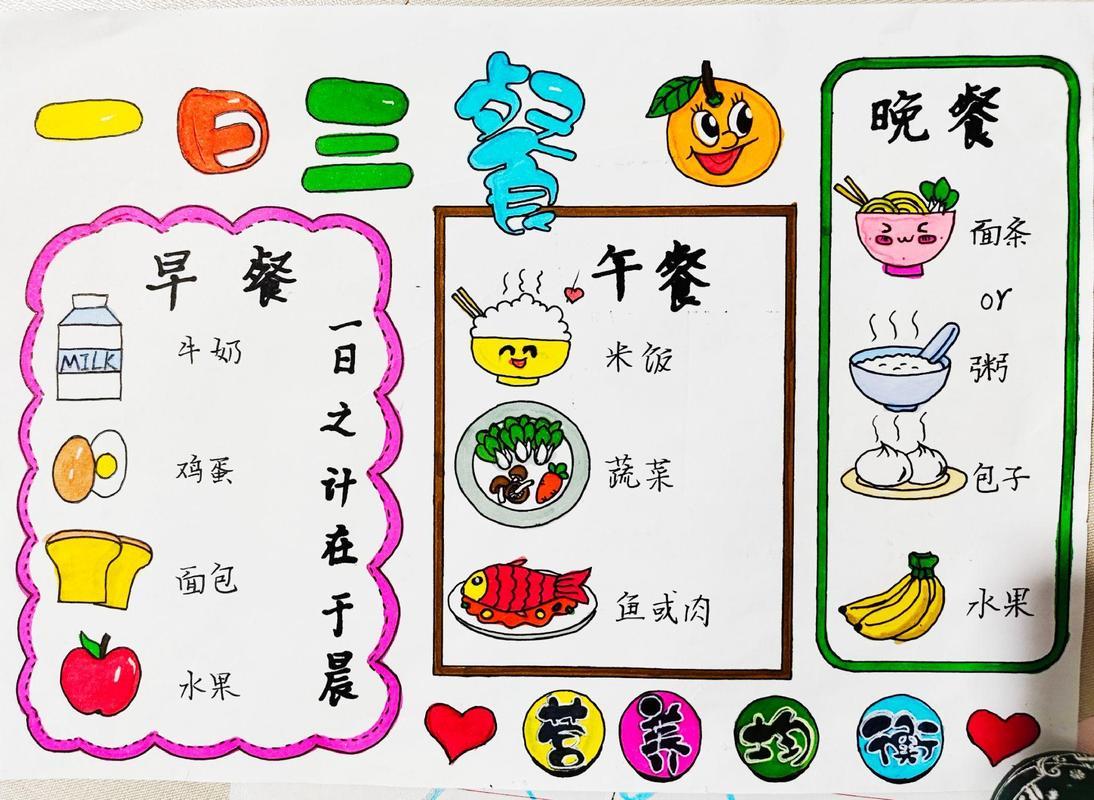 一日三餐
早餐
MILK
牛奶
鸡蛋
面包
水果
一日之计在于晨
午餐
米饭
蔬菜
鱼或肉
晚餐
面条
or
粥
包子
水果
营养均衡